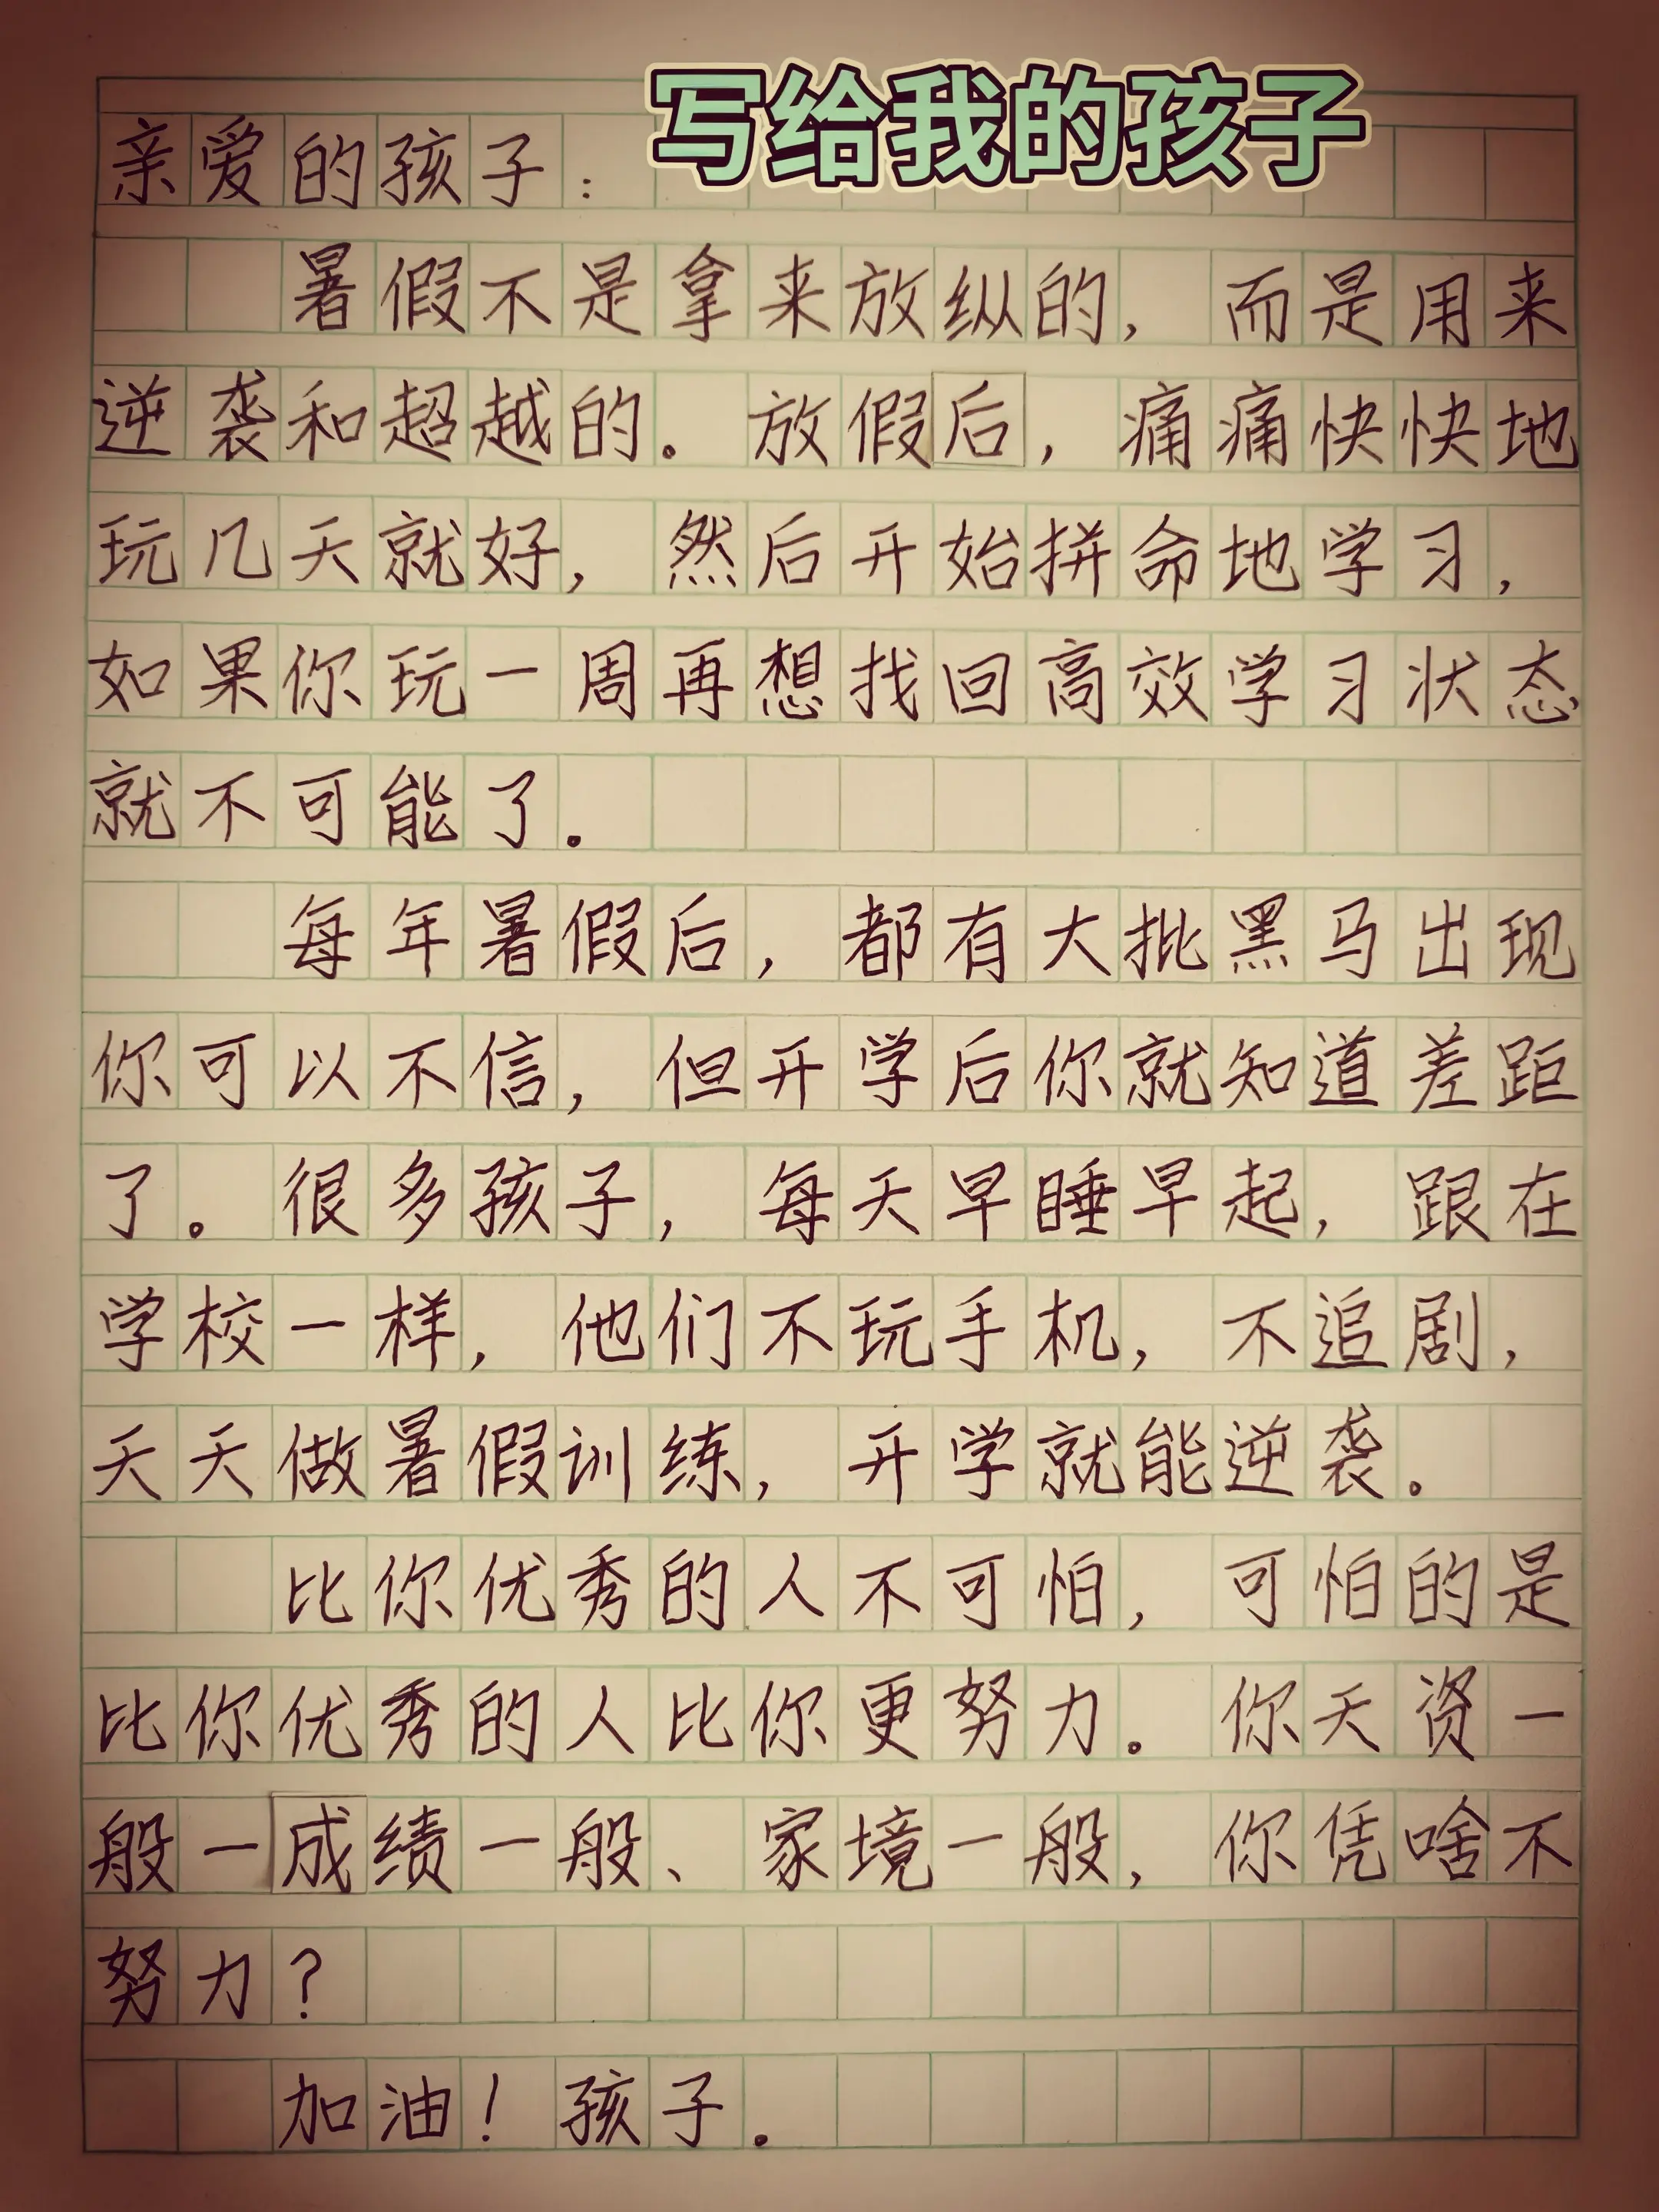 写给我的孩子
亲爱的孩子：
暑假不是拿来放纵的，而是用来
逆袭和超越的。放假后，痛痛快快地
玩几天就好，然后开始拼命地学习，
如果你玩一周再想找回高效学习状态
就不可能了。
每年暑假后，都有大批黑马出现
你可以不信，但开学后你就知道差距
了。很多孩子，每天早睡早起，跟在
学校一样，他们不玩手机，不追剧，
天天做暑假训练，开学就能逆袭。
比你优秀的人不可怕，可怕的是
比你优秀的人比你更努力。你天资一
般一成绩一般、家境一般，你凭啥不
努力？
加油！孩子。